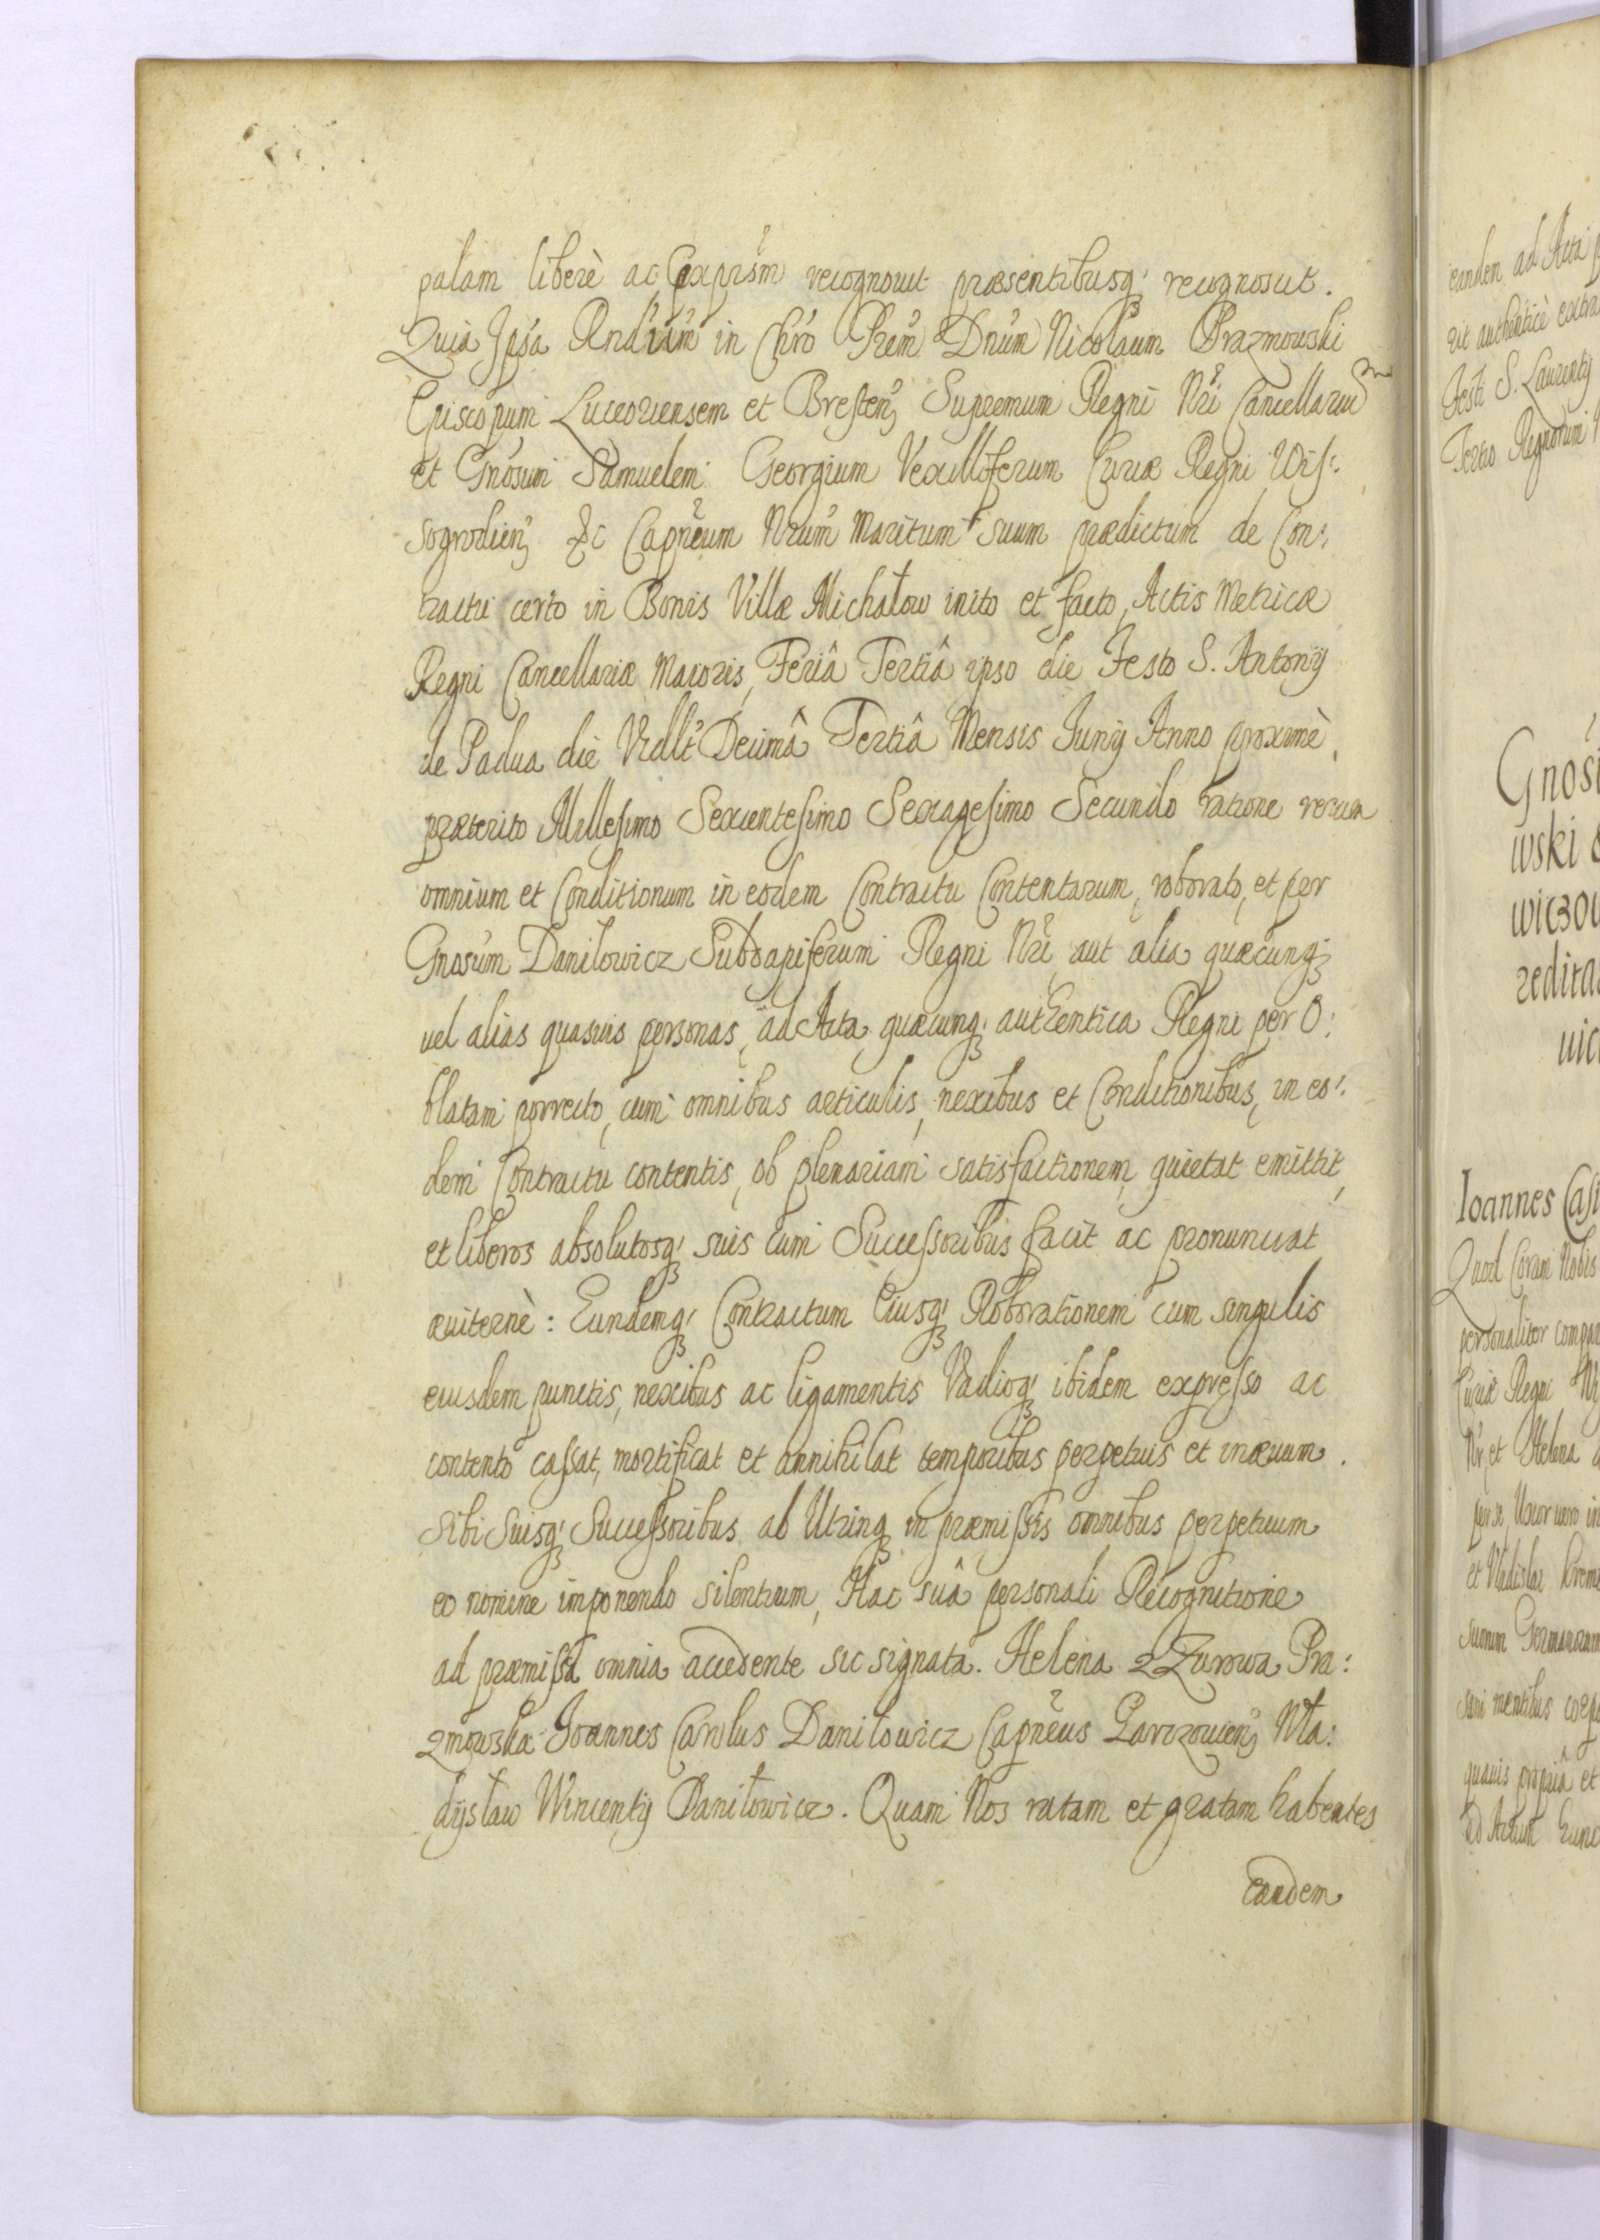 palam liberè ac expr̃sm recognovit præsentibusq́ꝫ recognoscit.
Quia Ipsa Rnd'ssm̃ in Chr̃o Prem̃ Dnũm Nicolaum Prazmowski
Episcopum Luceoriensem et Bresteñ Supremum Regni Nr̃i Cancellariũ
et Gnõsum Samuelem Georgium Vexilliferum Curiæ Regni Wis:
sogrodieñ &c Capñeum Nrũm Maritum suum prædictum de Con:
tractu certo in Bonis Villæ Michałow inito et facto, Actis Metricæ
Regni Cancellariæ Maioris, Feriâ Tertiâ ipso die Festo S. Antonÿ
de Padua die Vidlt' Decimâ Tertiâ Mensis Junÿ Anno proximè
præterito Millesimo Sexcentesimo Sexagesimo Secundo ratione rerum
omnium et Conditionum in eodem Contractu Contentarum, roborato, et per
Gnosũm Danilowicz Subdapiferum Regni Nr̃i aut alia quæcunqꝫ
vel alias quasvis personas, ad Acta quæcunq́ꝫ authentica Regni per O:
blatam porrecto, cum omnibus articulis, nexibus et Conditionibus, in eo:
dem Contractu contentis, ob plenariam satisfactionem, quietat emittit,
et liberos absolutosq́ꝫ suis cum Successoribus facit ac pronunciat
æviternè: Eundemq́ꝫ Contractum Eiusq́ꝫ Roborationem cum singulis
eiusdem punctis, nexibus ac ligamentis Vadioq́ꝫ ibidem expresso ac
contento cassat, mortificat et annihilat temporibus perpetuis et inævum.
Sibi Suisq́ꝫ Successoribus ab Utrinqꝫ in præmissis omnibus perpetuum
eo nomine imponendo silentium, Hac suâ personali Recognitione
ad præmissa omnia accedente sic signata. Helena z Zurowa Pra:
zmowska Joannes Carolus Danilowicz Capñeus Parczovieñ Wła:
dÿsław Wincentÿ Daniłowicz. Quam Nos ratam et gratam habentes
Eandem
eandem ad Acta
rit authenticè extra
Festi S. Laurentÿ
Tertio Regnorum
Gnosi
wski
wiczow
reditar
vic
Ioannes Casi
Quod Coram Nobis
personaliter compar
Curiæ Regni
et Helena
per se, Uxor vero in
et Vladislai
suorum Germanorum
sani mentibus corp
quavis propriâ et
ad Actum hunc